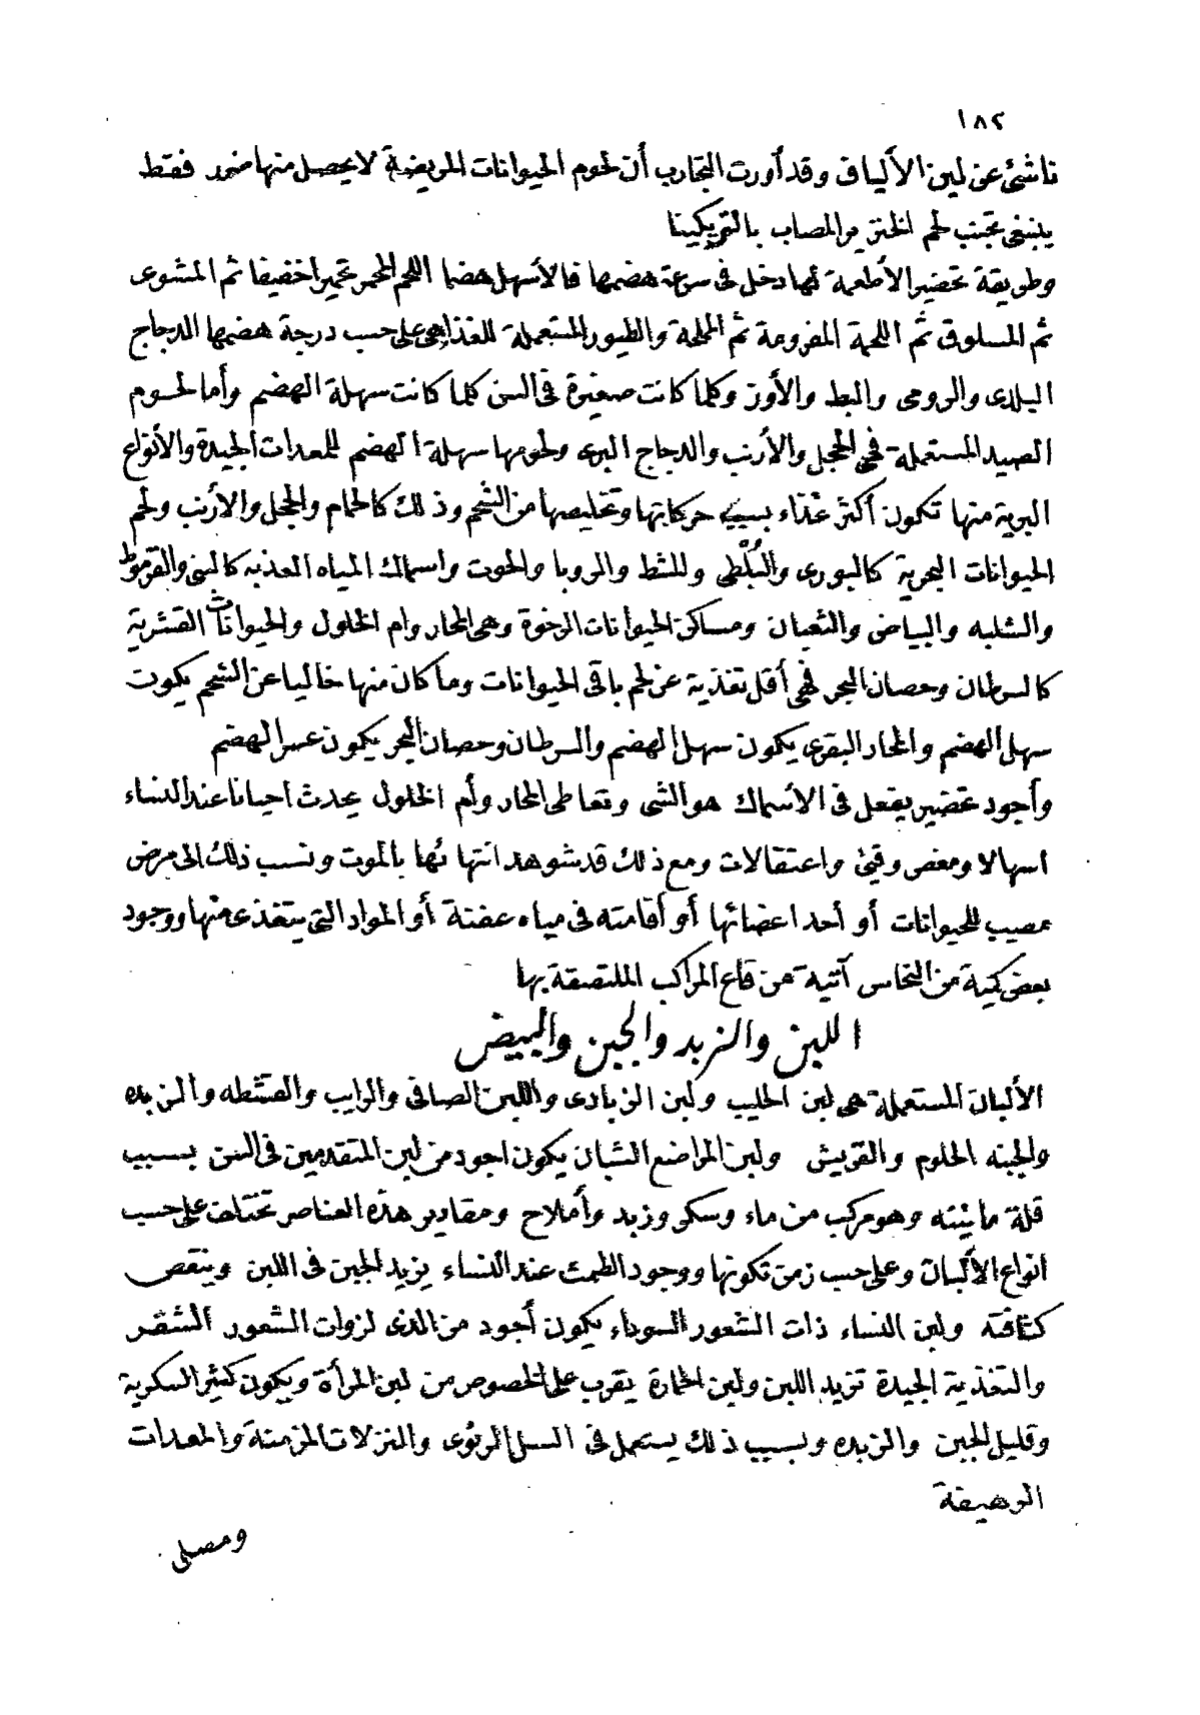 ١٨٢
ناشئ عن لين الألياف وقد أورت التجارب أن لحوم الحيوانات المريضة لا يحصل منها ضرر فقط
ينبغى تجنب لحم الخنزير المصاب بالتريكينا
وطريقة تحضير الأطعمة لها دخل فى سرعة هضمها فالأسهل هضما اللحم المحمر تحميرا خفيفا ثم المشوى
ثم المسلوق ثم اللحمة المفرومة ثم المملحة والطيور المستعملة للغذا هى على حسب درجة هضمها الدجاج
البلدى والرومى والبط والأوز وكلما كانت صغيرة فى السن كلما كانت سهلة الهضم وأما لحوم
الصيد المستعملة فهى الحجل والأرنب والدجاج البرى ولحومها سهلة الهضم للمعدات الجيدة والأنواع
البرية منها تكون أكثر غذاء بسبب حركاتها وتخليصها من الشحم وذلك كالحمام والحجل والأرنب ولحم
الحيوانات البحرية كالبورى والبُلْطى وللشط والروبا والحوت واسماك المياه العذبه كالبنى والقرموط
والشلبه والبياض والثعبان ومساكن الحيوانات الرخوة وهى المحار وام الخلول والحيوانات القشرية
كالسرطان وحصان البحر فهى أقل تغذية عن لحم باقى الحيوانات وما كان منها خاليا عن الشحم يكون
سهل الهضم والمحار البقرى يكون سهل الهضم والسرطان وحصان البحر يكون عسر الهضم
وأجود تحضير يفعل فى الأسماك هو الشى وتعاطى المحار وأم الخلول يحدث احيانا عند النساء
اسهالا ومغص وقيئ واعتقالات ومع ذلك قد شوهد انتهائها بالموت ونسب ذلك الى مرض
مصيب للحيوانات أو أحد اعضائها أو أقامته فى مياه عفنة أو المواد التى يتغذى منها ووجود
بعض كمية من النحاس آتية من قاع المراكب الملتصقة بها
اللبن والزبد والجبن والبيض
الألبان المستعملة هى لبن الحليب ولبن الزبادى واللبن الصافى والرايب والقشطه والزبده
والجبنه الحلوم والقريش ولبن المراضع الشبان يكون اجود من لبن المتقدمين فى السن بسبب
قلة مائيته وهو مركب من ماء وسكر وزبد وأملاح ومقادير هذه العناصر تختلف على حسب
انواع الألبان وعلى حسب زمن تكونها ووجود الطمث عند النساء يزيد الجبن فى اللبن وينقص
كثافته ولبن النساء ذات الشعور السوداء يكون أجود من الذى لزوات الشعور الشقر
والتغذية الجيدة تزيد اللبن ولبن الحمارة يقرب على الخصوص من لبن المرأة ويكون كثير السكرية
وقليل الجبن والزبده وبسبب ذلك يستعمل فى السل الرئوى والنزلات المزمنة والمعدات
الرهيفة
ومصلى